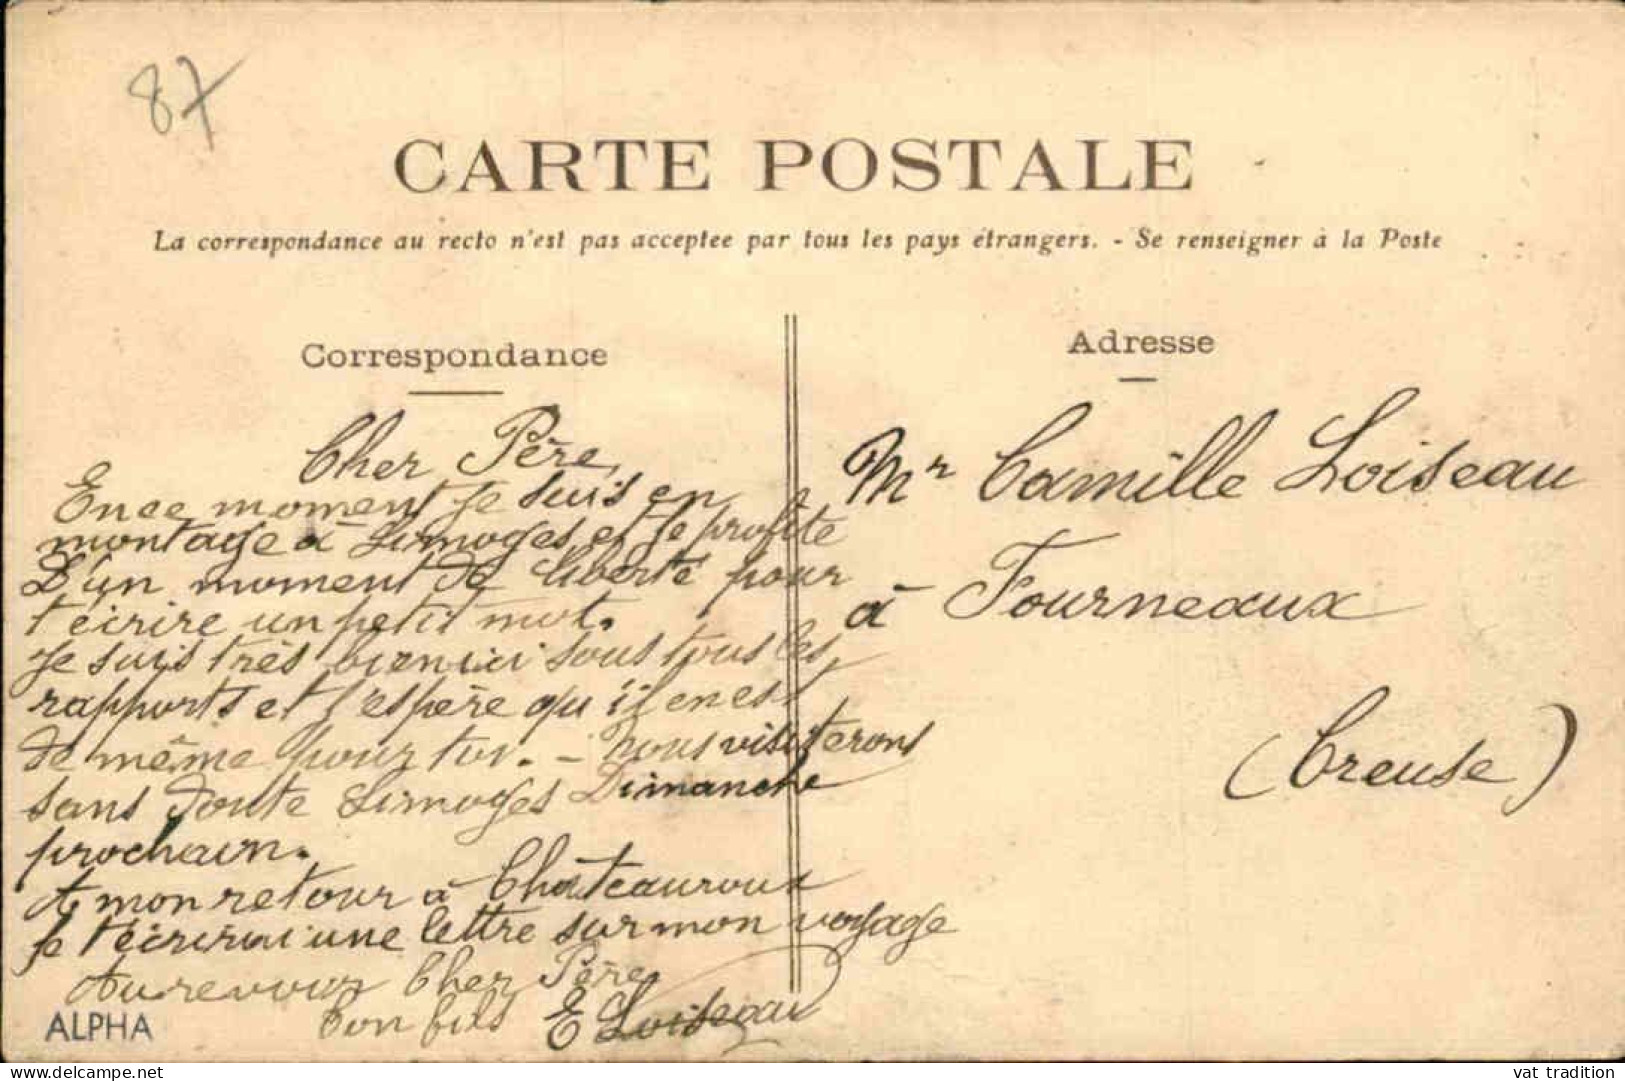 87
CARTE POSTALE
La correspondance au recto n'est pas acceptee par tous les pays étrangers. - Se renseigner à la Poste
Correspondance
Cher Père,
En ce moment je suis en
montage à Limoges et je profite
d'un moment de liberté pour
t'écrire un petit mot.
Je suis très bien ici sous tous les
rapports et j'espère qu'il en est
de même pour toi. - Nous visiterons
sans doute Limoges Dimanche
prochain.
A mon retour à Châteauroux
je t'écrirai une lettre sur mon voyage
Au revoir Cher Père
Ton fils E Loiseau
ALPHA
Adresse
Mr Camille Loiseau
à Fourneaux
(Creuse)
vat tradition